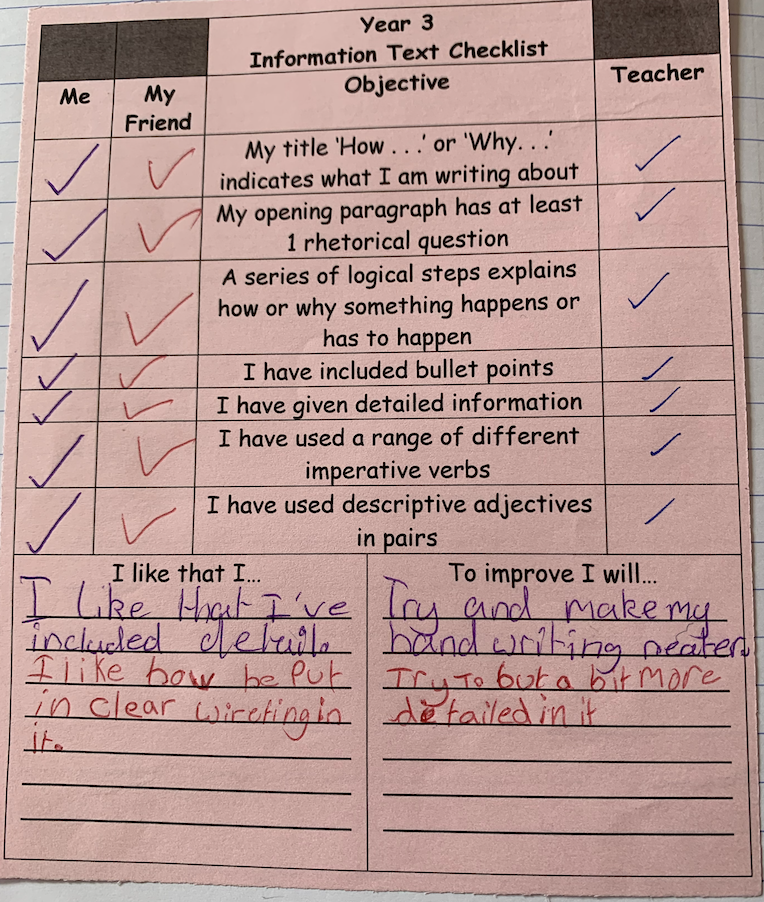 Year 3
Information Text Checklist
Me
My
Friend
Objective
Teacher
My title 'How . . .' or 'Why. . .'
indicates what I am writing about
My opening paragraph has at least
1 rhetorical question
A series of logical steps explains
how or why something happens or
has to happen
I have included bullet points
I have given detailed information
I have used a range of different
imperative verbs
I have used descriptive adjectives
in pairs
I like that I...
I like that I've
included detail.
I like how he Put
in clear wireting in
it.
To improve I will...
Try and make my
handwriting neater.
Try To but a bit More
detailed in it